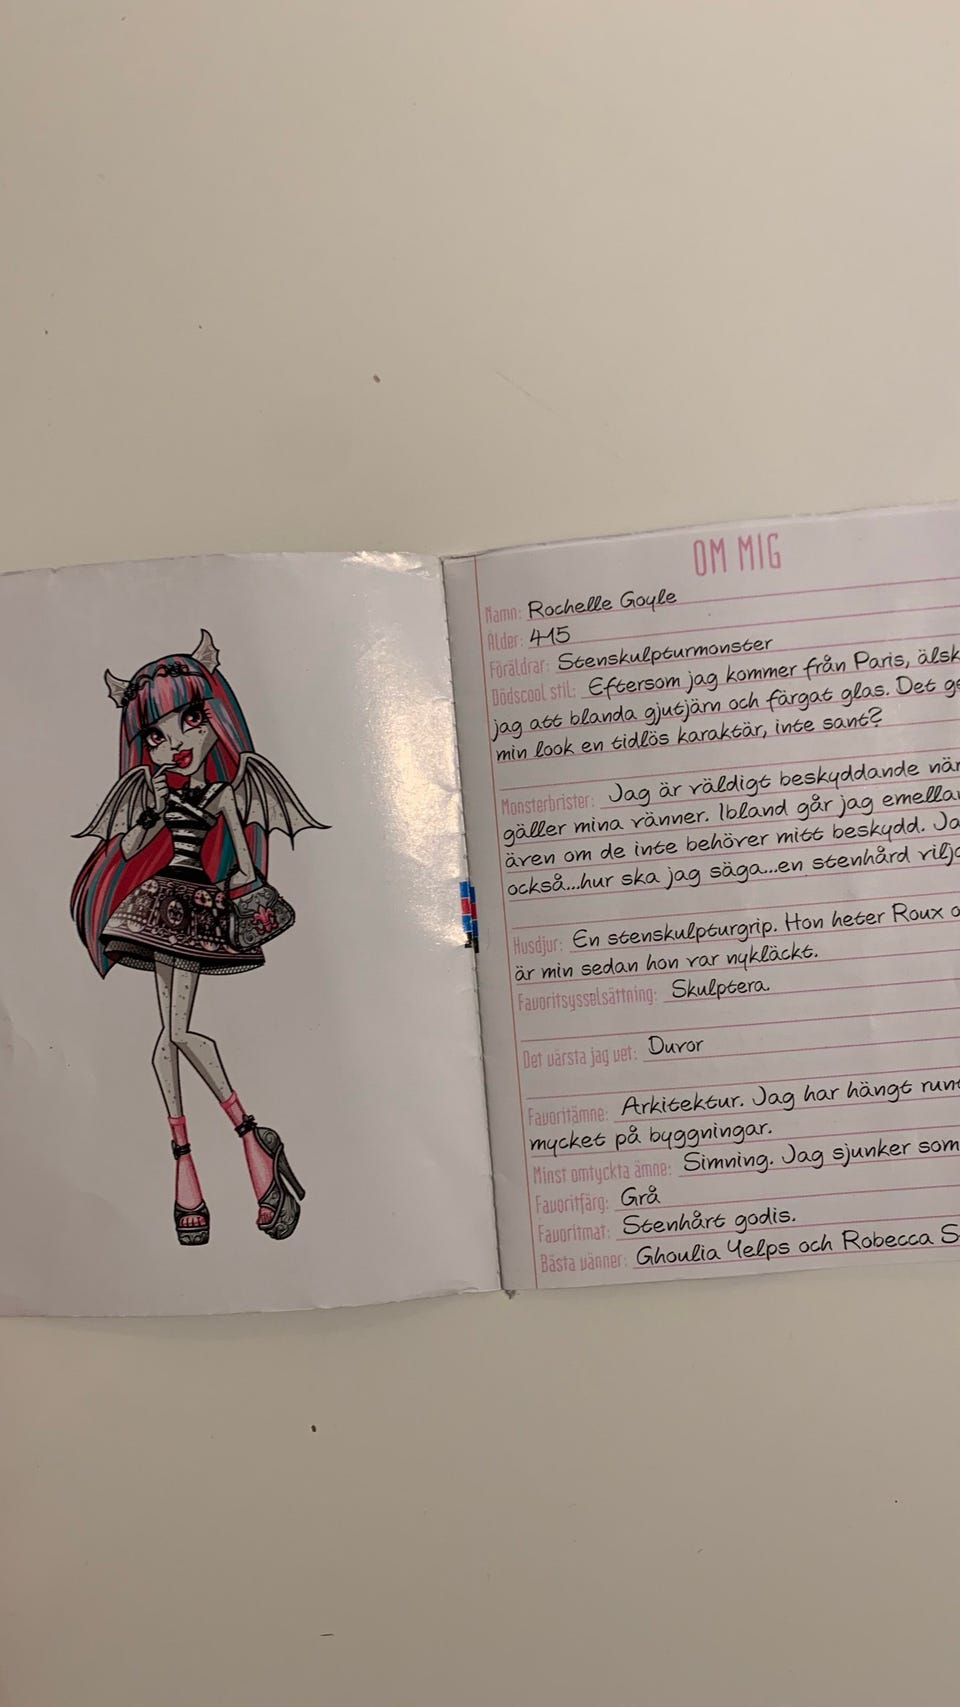 OM MIG
Namn: Rochelle Goyle
Ålder: 415
Föräldrar: Stenskulpturmonster
Dödscool stil: Eftersom jag kommer från Paris, älsk
jag att blanda gjutjärn och färgat glas. Det ge
min look en tidlös karaktär, inte sant?
Monsterbrister: Jag är väldigt beskyddande när
gäller mina vänner. Ibland går jag emella
även om de inte behöver mitt beskydd. Ja
också...hur ska jag säga...en stenhård vilj
Husdjur: En stenskulpturgrip. Hon heter Roux o
är min sedan hon var nykläckt.
Favoritsysselsättning: Skulptera.
Det värsta jag vet: Duvor
Favoritämne: Arkitektur. Jag har hängt runt
mycket på byggningar.
Minst omtyckta ämne: Simning. Jag sjunker som
Favoritfärg: Grå
Favoritmat: Stenhårt godis.
Bästa vänner: Ghoulia Yelps och Robecca S